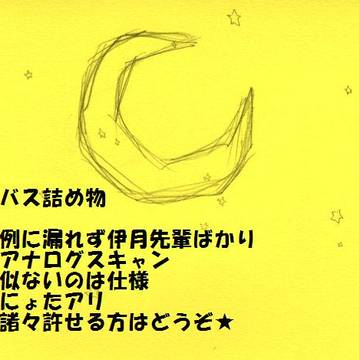 バス詰め物
例に漏れず伊月先輩ばかり
アナログスキャン
似ないのは仕様
にょたアリ
諸々許せる方はどうぞ★